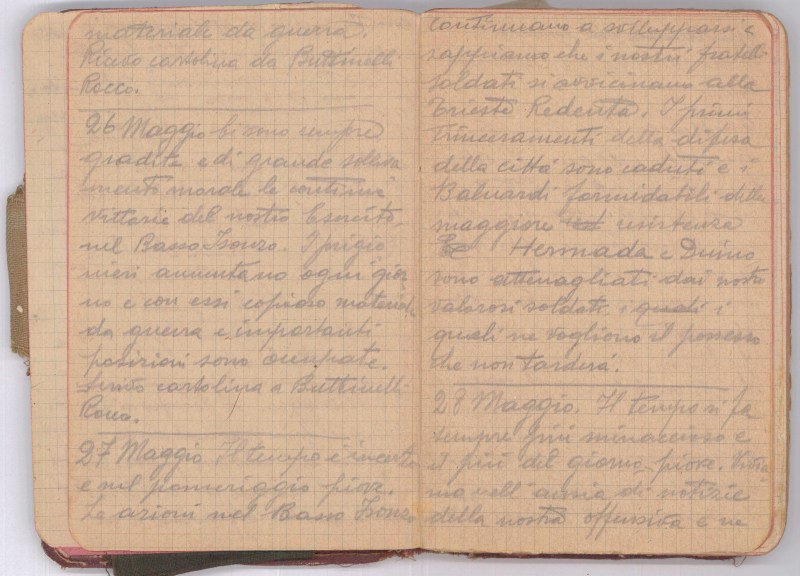 materiale da guerra.
Ricevo cartolina da Buttinelli
Rocco.
26 Maggio Ci sono sempre
gradite e di grande solleva
mento morale le continue
vittorie del nostro Esercito,
nel Basso Isonzo. I prigio
nieri aumentano ogni gior
no e con essi copioso materiale
da guerra e importanti
posizioni sono occupate.
Scrivo cartolina a Buttinelli
Rocco.
27 Maggio Il tempo è incerto
e nel pomeriggio piove.
Le azioni nel Basso Isonzo
continuano a svilupparsi e
sappiamo che i nostri fratelli
soldati si avvicinano alla
Trieste Redenta. I primi
Trinceramenti della difesa
della città sono caduti e i
Baluardi formidabili della
maggiore resistenza
Hermada e Duino
sono attenagliati dai nostri
valorosi soldati, i quali i
quali ne vogliono il possesso
che non tarderà.
28 Maggio. Il tempo si fa
sempre più minaccioso e
il più del giorno piove. Vivia
mo nell'ansia di notizie
della nostra offensiva e ne